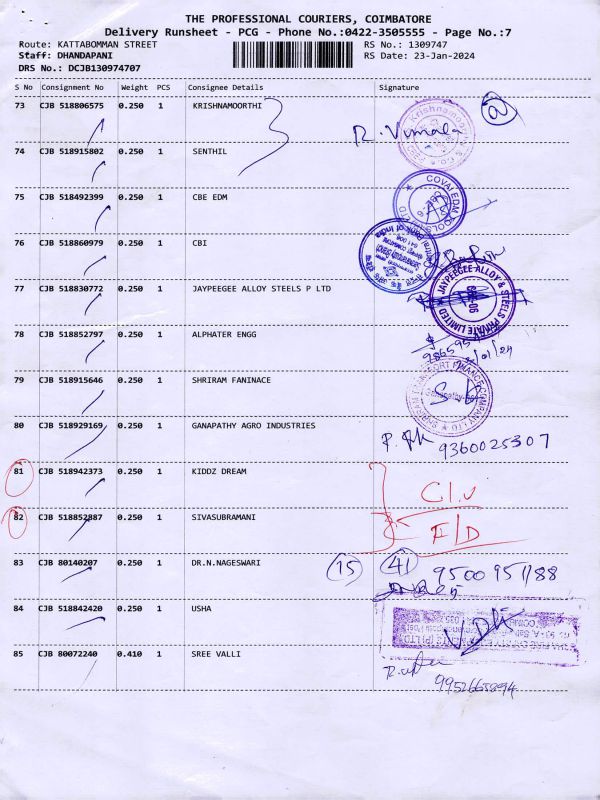 THE PROFESSIONAL COURIERS, COIMBATORE
Delivery Runsheet - PCG - Phone No.:0422-3505555 - Page No.:7
Route: KATTABOMMAN STREET RS No.: 1309747
Staff: DHANDAPANI RS Date: 23-Jan-2024
DRS No.: DCJB130974707
S No Consignment No Weight PCS Consignee Details Signature
73 CJB 518806575 0.250 1 KRISHNAMOORTHI
R. Vimala
74 CJB 518915802 0.250 1 SENTHIL
75 CJB 518492399 0.250 1 CBE EDM
76 CJB 518860979 0.250 1 CBI
77 CJB 518830772 0.250 1 JAYPEEGEE ALLOY STEELS P LTD
JAYPEEGEE ALLOY & STEELS PRIVATE LIMITED
78 CJB 518852797 0.250 1 ALPHATER ENGG
79 CJB 518915646 0.250 1 SHRIRAM FANINACE
SHRIRAM TRANSPORT FINANCE COMPANY LTD
80 CJB 518929169 0.250 1 GANAPATHY AGRO INDUSTRIES
9360025307
81 CJB 518942373 0.250 1 KIDDZ DREAM
82 CJB 518852887 0.250 1 SIVASUBRAMANI
F/D
83 CJB 80140207 0.250 1 DR.N.NAGESWARI 15 41
9500951188
84 CJB 518842420 0.250 1 USHA
85 CJB 80072240 0.410 1 SREE VALLI